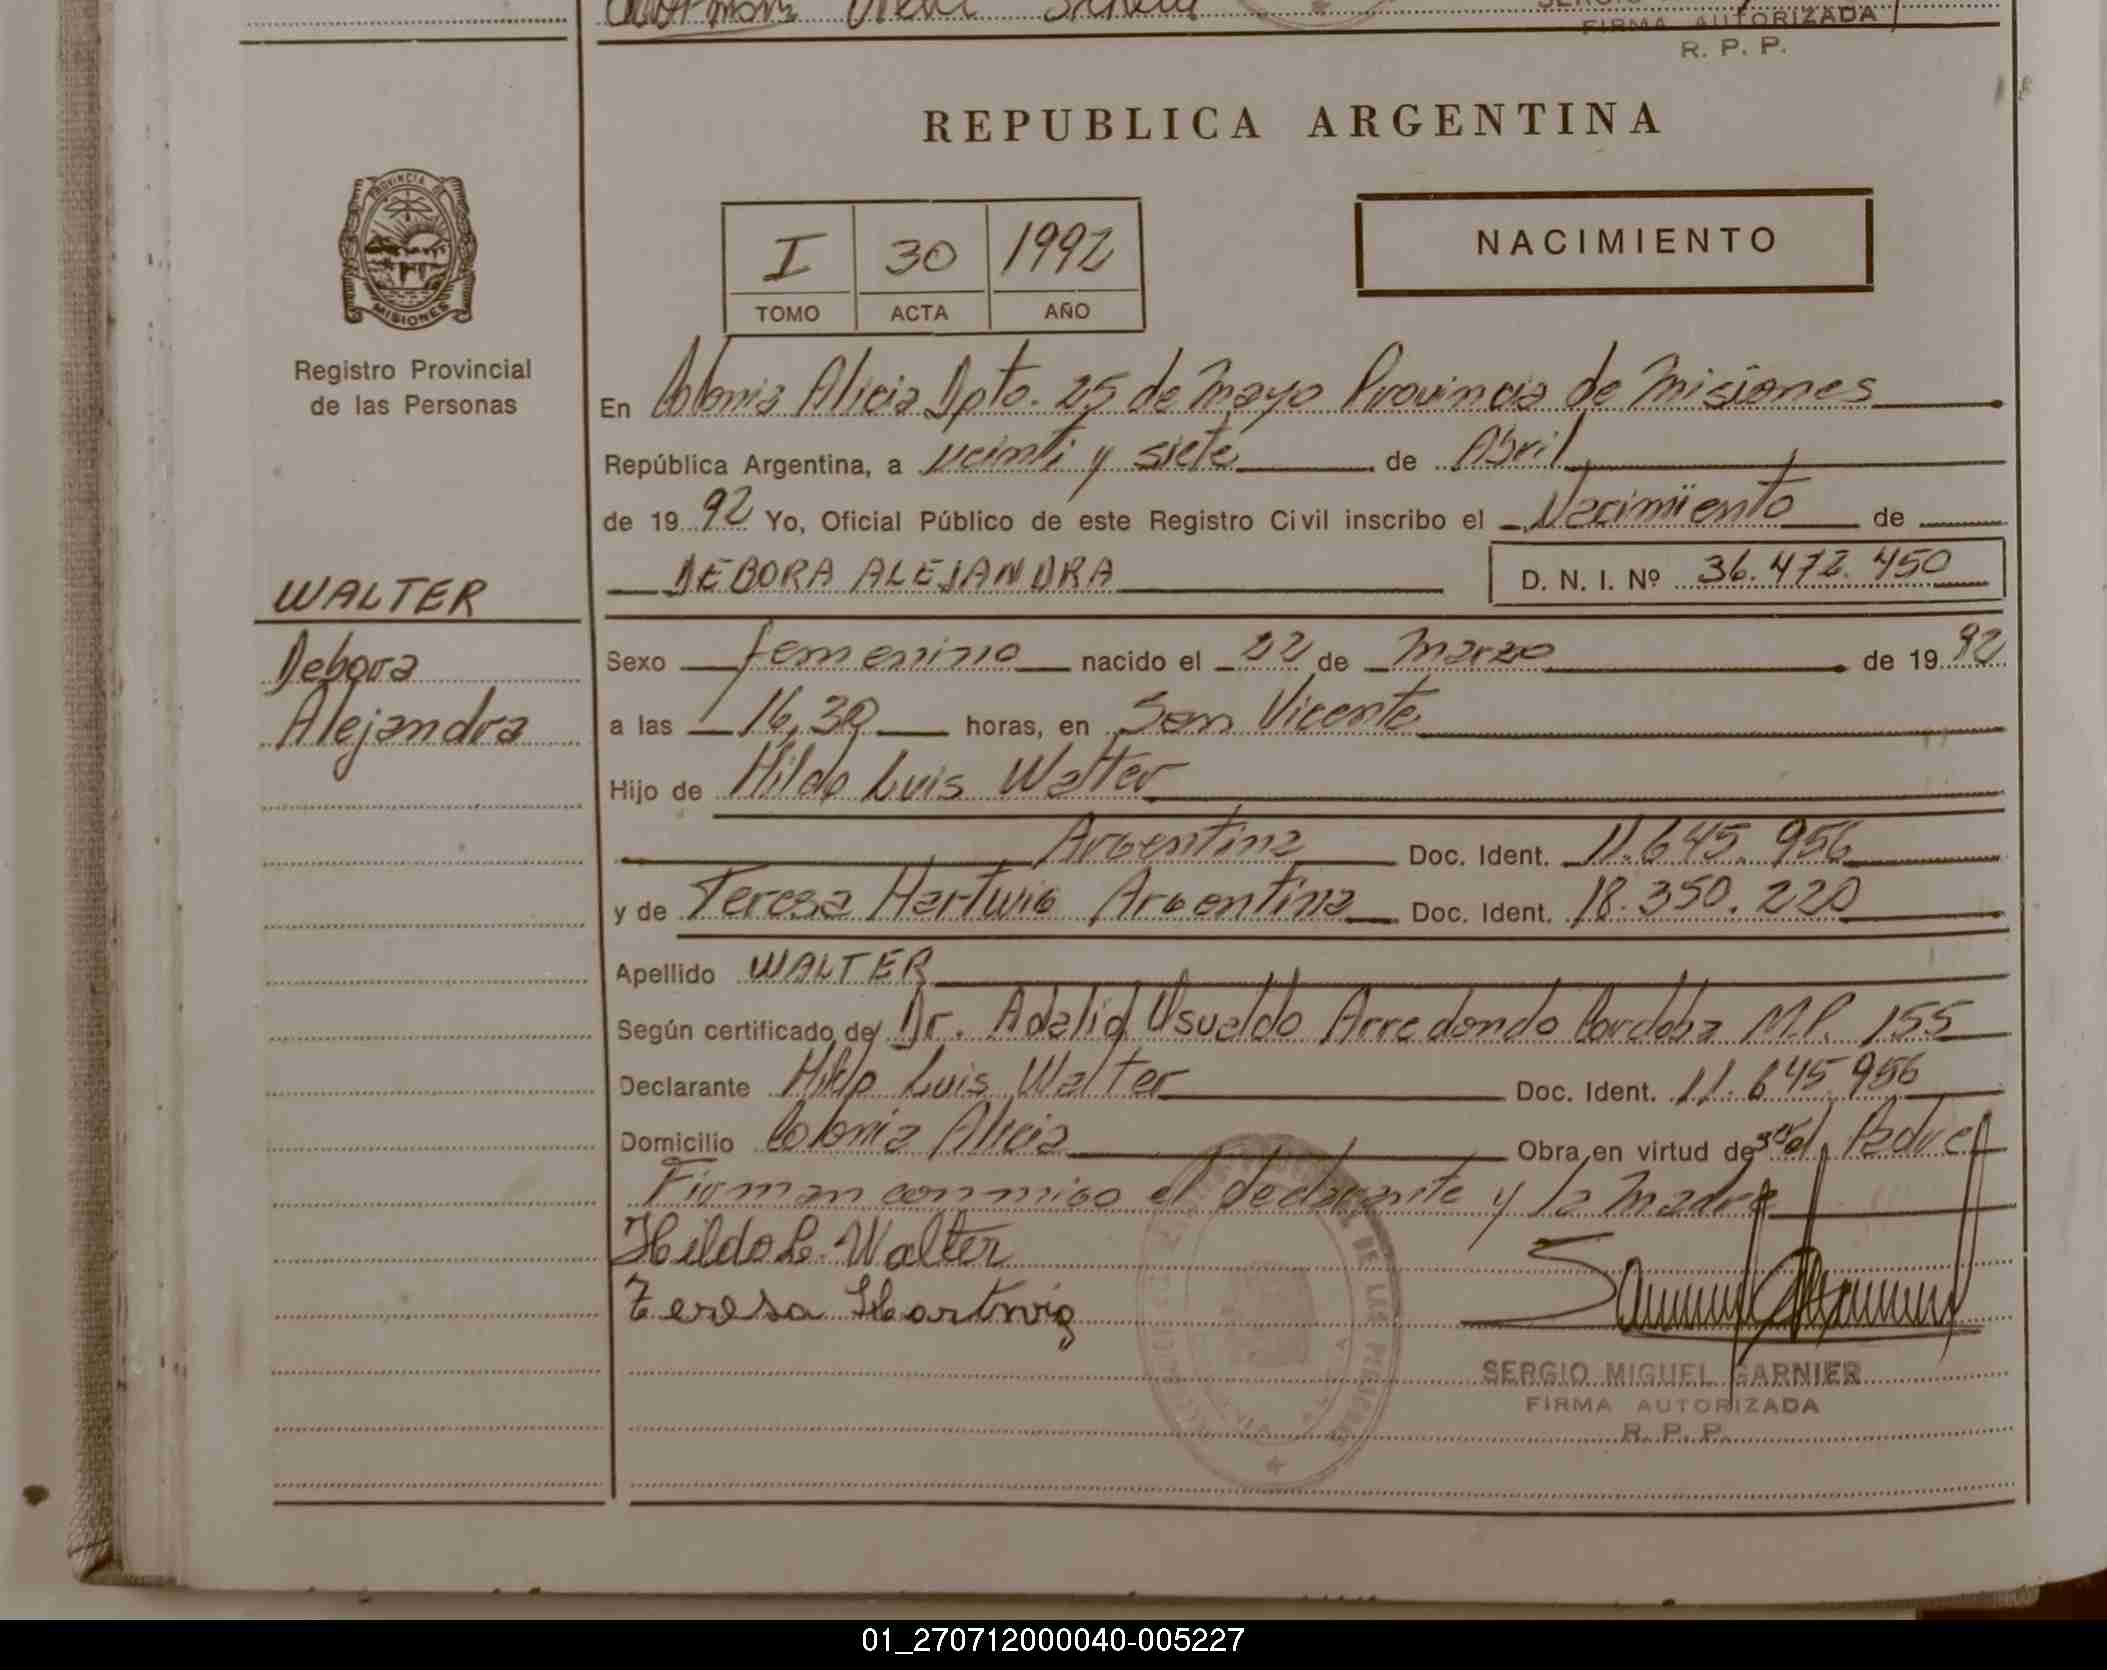 FIRMA AUTORIZADA
R. P. P.
REPUBLICA ARGENTINA
PROVINCIA DE
MISIONES
Registro Provincial
de las Personas
I 30 1992
TOMO ACTA AÑO
NACIMIENTO
En Colonia Alicia Dpto. 25 de Mayo Provincia de Misiones
República Argentina, a veinti y siete de Abril
de 1992 Yo, Oficial Público de este Registro Civil inscribo el Nacimiento de
DEBORA ALEJANDRA D. N. I. Nº 36.472.450
WALTER
Debora
Alejandra
Sexo femenino nacido el 22 de Marzo de 1992
a las 16,30 horas, en San Vicente
Hijo de Hildo Luis Walter
Argentina Doc. Ident. 11.645.956
y de Teresa Hartwig Argentina Doc. Ident. 18.350.220
Apellido WALTER
Según certificado de Dr. Adalid Usualdo Arredondo Cordoba M.P. 155
Declarante Hildo Luis Walter Doc. Ident. 11.645.956
Domicilio Colonia Alicia Obra en virtud de ser el Padre
Firman conmigo el declarante y la Madre
Hildo L. Walter
Teresa Hartwig
SERGIO MIGUEL GARNIER
FIRMA AUTORIZADA
R. P. P.
01_270712000040-005227